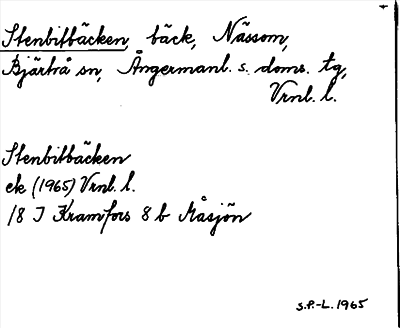 Stenbitbäcken, bäck, Nässom,
Bjärtrå sn, Ångermanl. s. doms. tg,
Vrnl. l.
Stenbitbäcken
ek (1965) Vrnl. l.
18 J Kramfors 8 b Måsjön
S.P.-L. 1965